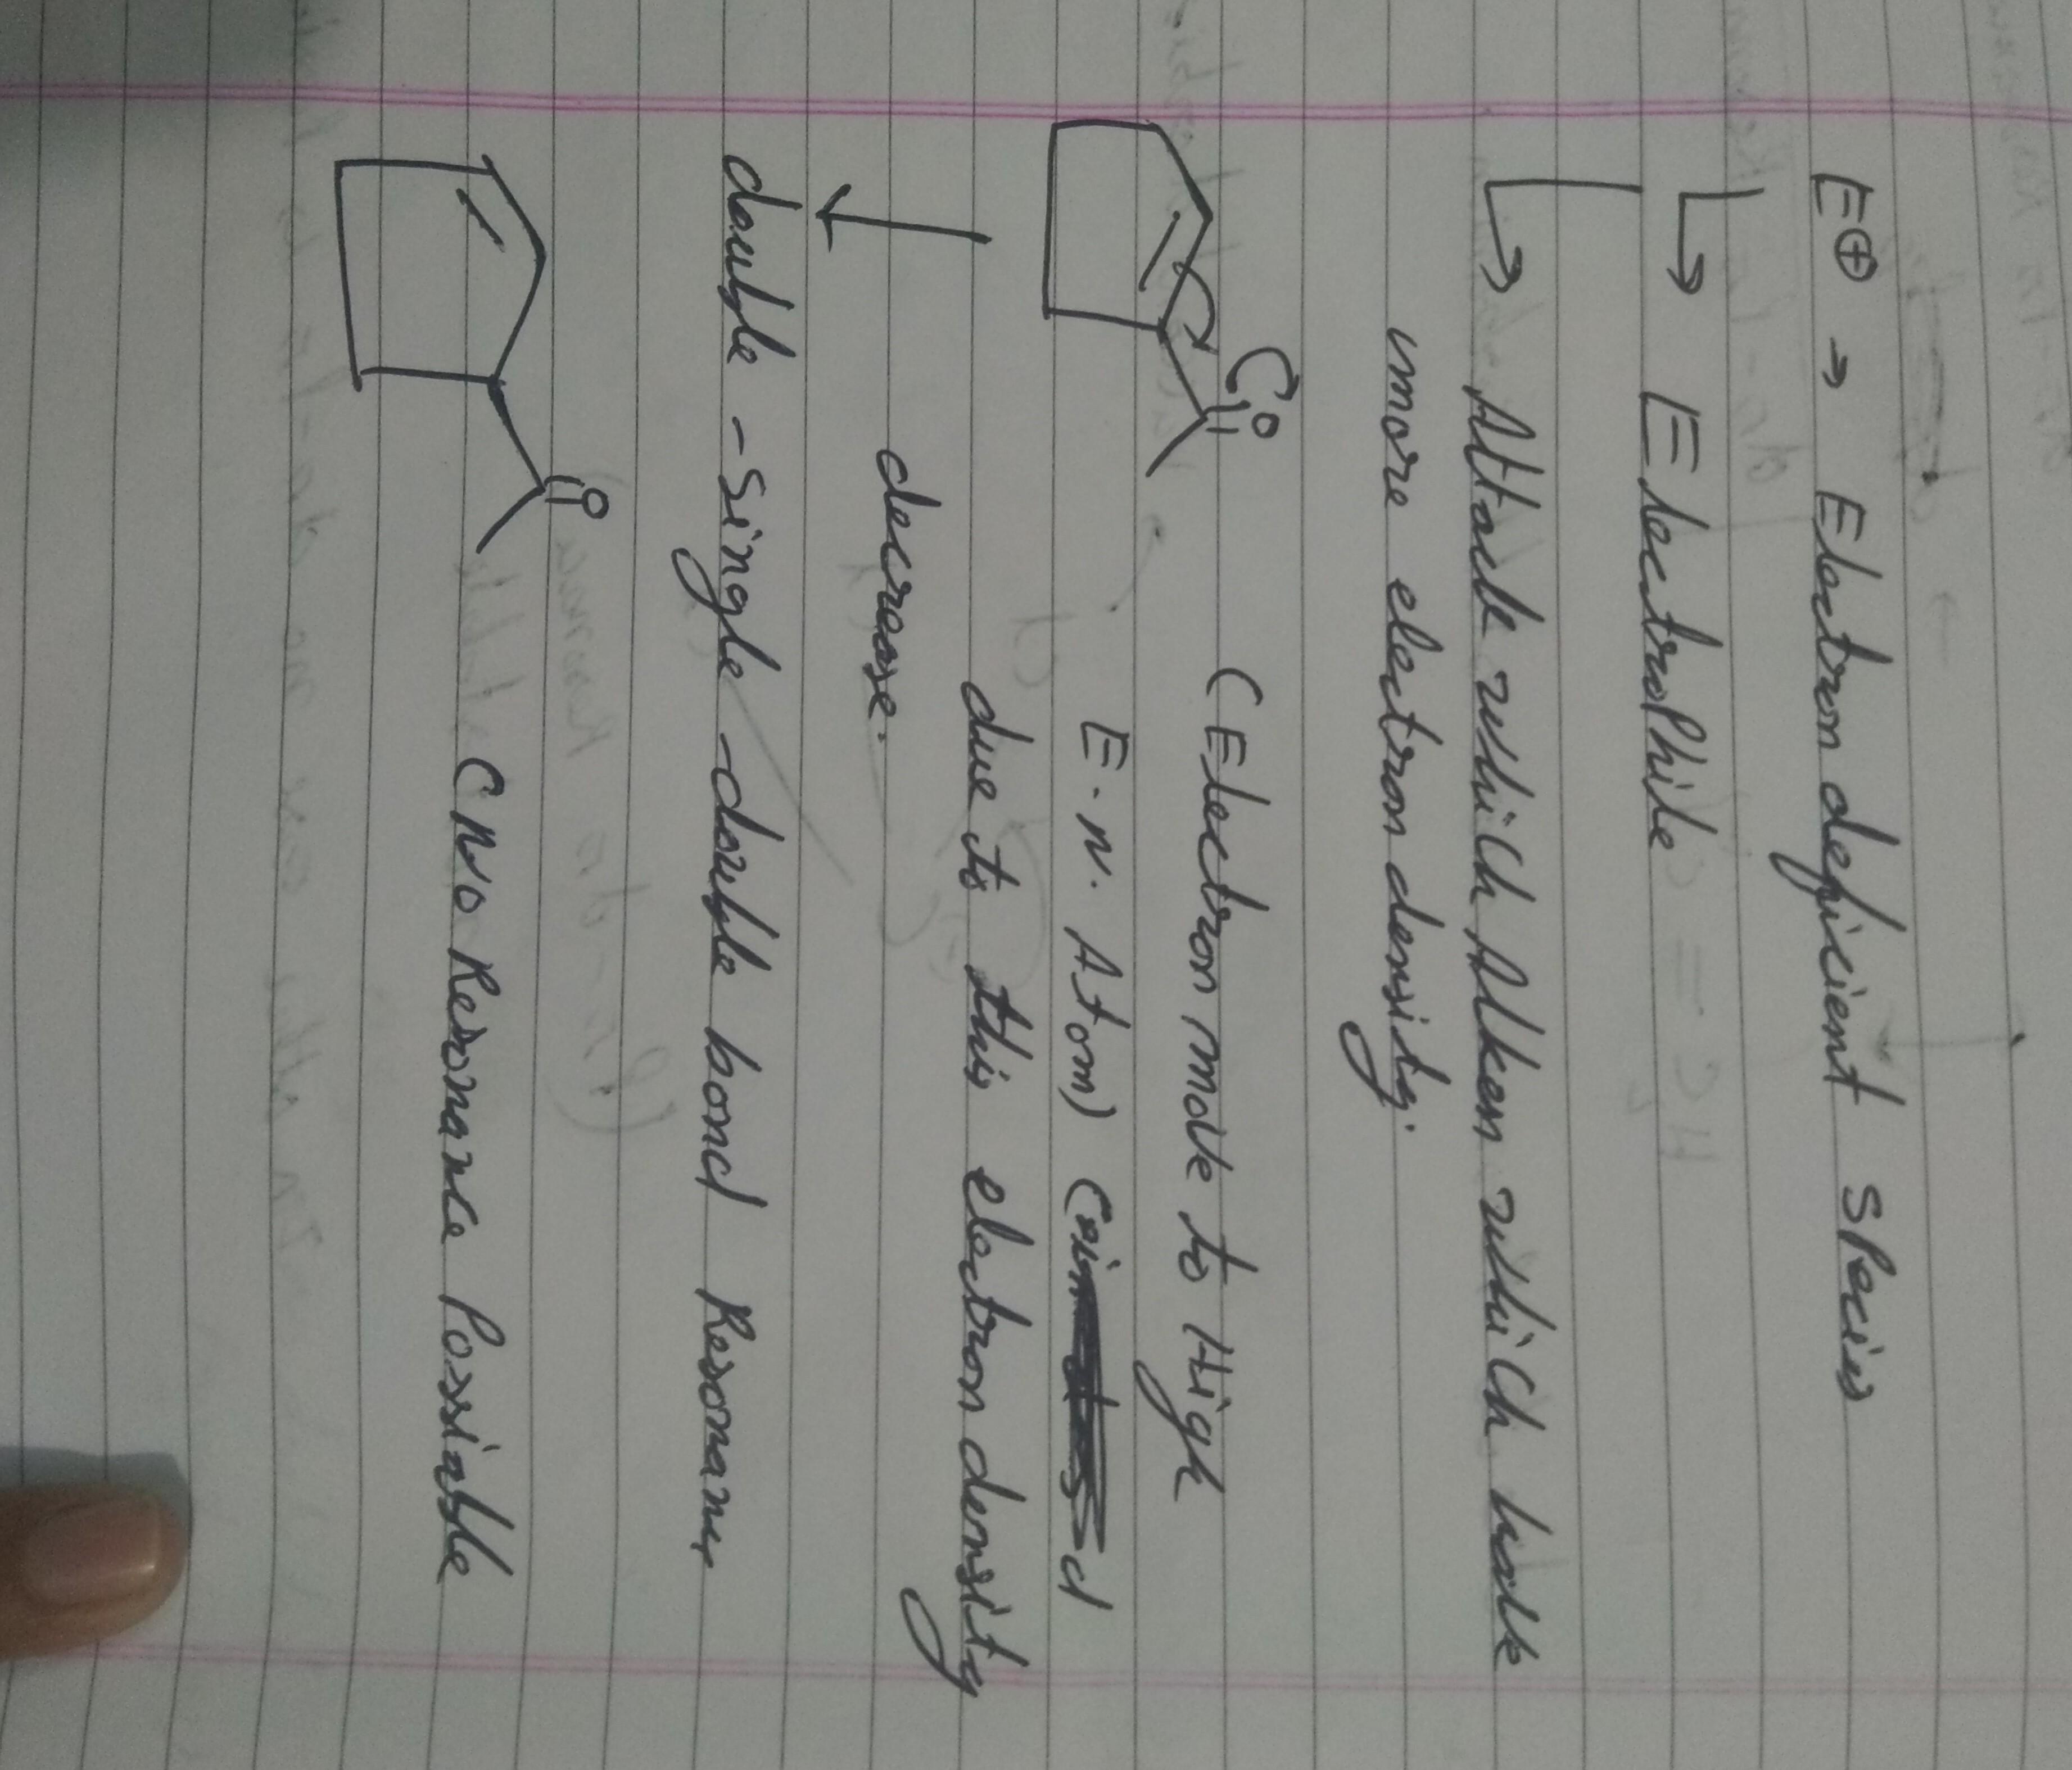 E⊕ → Electron deficient Specis
↳ ElectroPhile
↳ Attack which Alken which have
more electron density.
O
(Electron move to High
E.N. Atom) (
due to this electron density
decrease.
double - single - double bond Resonanc
O
( No Resonance Possiable